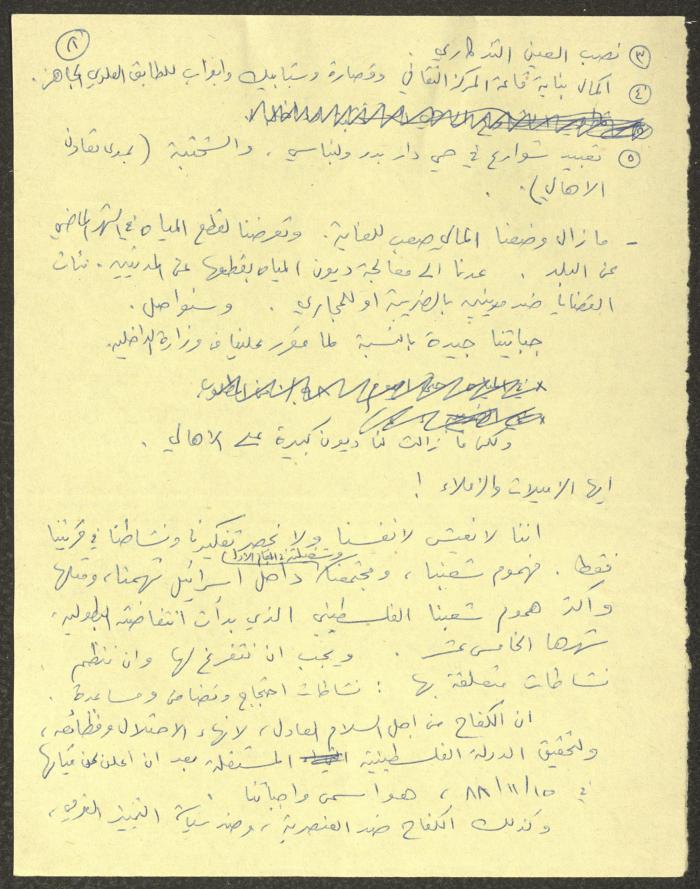 ٨
٣ نصب العين التذكاري.
٤ اكمال بناية قاعة المركز الثقافي وقصارة وشبابيك وابواب للطابق العلوي الجاهز.
٥ تعبيد شوارع في حي دار بدر ولباسي، والشختبة (بمدى تعاون
الاهالي).
- ما زال وضعنا المالي صعب للغاية. وتعرضنا لقطع المياه في الشهر الماضي
عن البلد. عدنا الى معالجة ديون المياه بقطعها عن المدينين. مئات
القضايا ضد مدينين بالضريبة او للمجاري. وسنواصل.
جبايتنا جيدة بالنسبة لما مقرر علينا في وزارة الداخلية.
ولكن ما زالت لنا ديون كبيرة على الاهالي.
ايها الزميلات والزملاء!
اننا لا نعيش لانفسنا ولا نحصر تفكيرنا ونشاطنا في قريتنا
فقط. فهموم شعبنا، ومجتمعنا داخل اسرائيل تهمنا، ومثلها
واكثر هموم شعبنا الفلسطيني الذي بدأت انتفاضته البطولية،
شهرها الخامس عشر. ويجب ان نتفرغ لها وان ننظم
نشاطات متعلقة بها: نشاطات احتجاج وتضامن ومساعدة.
ان الكفاح من اجل السلام العادل، لانهاء الاحتلال وفظائعه،
ولتحقيق الدولة الفلسطينية المستقلة بعد ان اعلن عن قيامها
في ١٥/١١/٨٨، هو اسمى واجباتنا.
وكذلك الكفاح ضد العنصرية، وضد سياسة التمييز القومي،